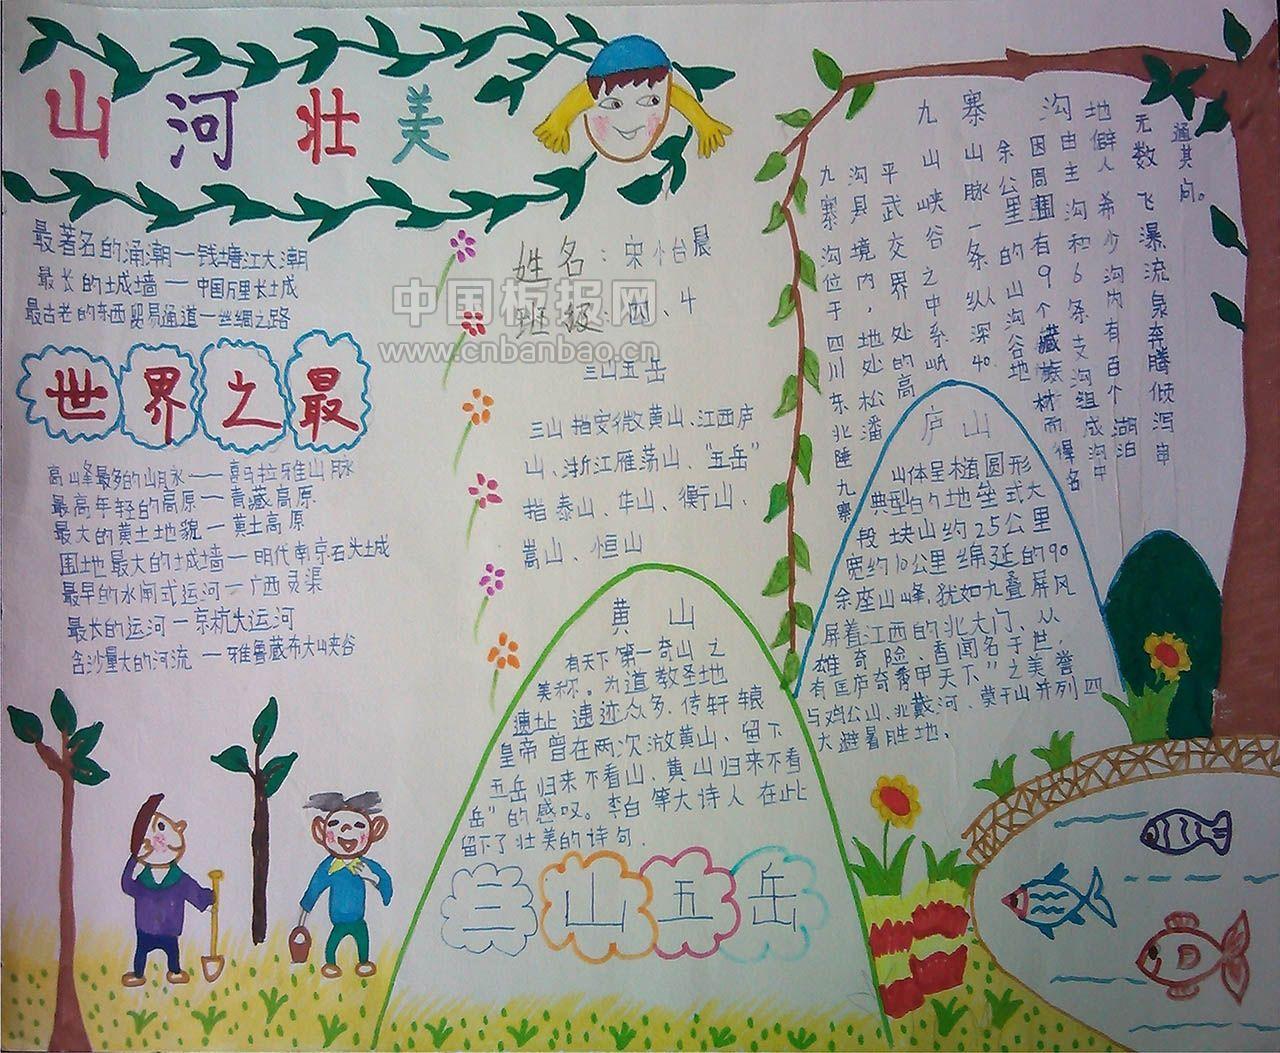 山河壮美
最著名的涌潮一钱塘江大潮
最长的城墙一中国万里长城
最古老的东西贸易通道一丝绸之路
世界之最
高山峰最多的山脉——喜马拉雅山脉
最高年轻的高原一青藏高原
最大的黄土地貌一黄土高原
围地最大的城墙一明代南京石头城
最早的水闸式运河一广西灵渠
最长的运河一京杭大运河
含沙量大的河流一雅鲁藏布大山峡谷
姓名：宋怡晨
班级：四、4
中国板报网
www.cnbanbao.cn
三山五岳
三山指安徽黄山、江西庐
山、浙江雁荡山、“五岳”
指泰山、华山、衡山、
嵩山、恒山
黄山
有天下第一奇山之
美称。为道教圣地
遗址遗迹众多，传轩辕
皇帝曾在两次游黄山、留下
五岳归来不看山、黄山归来不看
岳”的感叹。李白等大诗人在此
留下了壮美的诗句.
三山五岳
九寨沟
地僻人希少沟内有百个湖泊
无数飞瀑流泉奔腾倾泻申
通其间。
由主沟和6条支沟组成沟中
因周围有9个藏族村而得名
余公里的山沟谷地
山脉一条纵深40
九山峡谷之中系岷
平武交界处的高
沟县境内,地处松潘
九寨沟位于四川东北陲九寨
庐山
山体呈椭圆形
典型的地垒式大
段块山约25公里
宽约10公里绵延的90
余座山峰,犹如九叠屏风
屏着江西的北大门、从
雄奇险、香闻名于世，
有匡庐奇秀甲天下”之美誉
与鸡公山、北戴河、莫干山并列四
大避暑胜地、